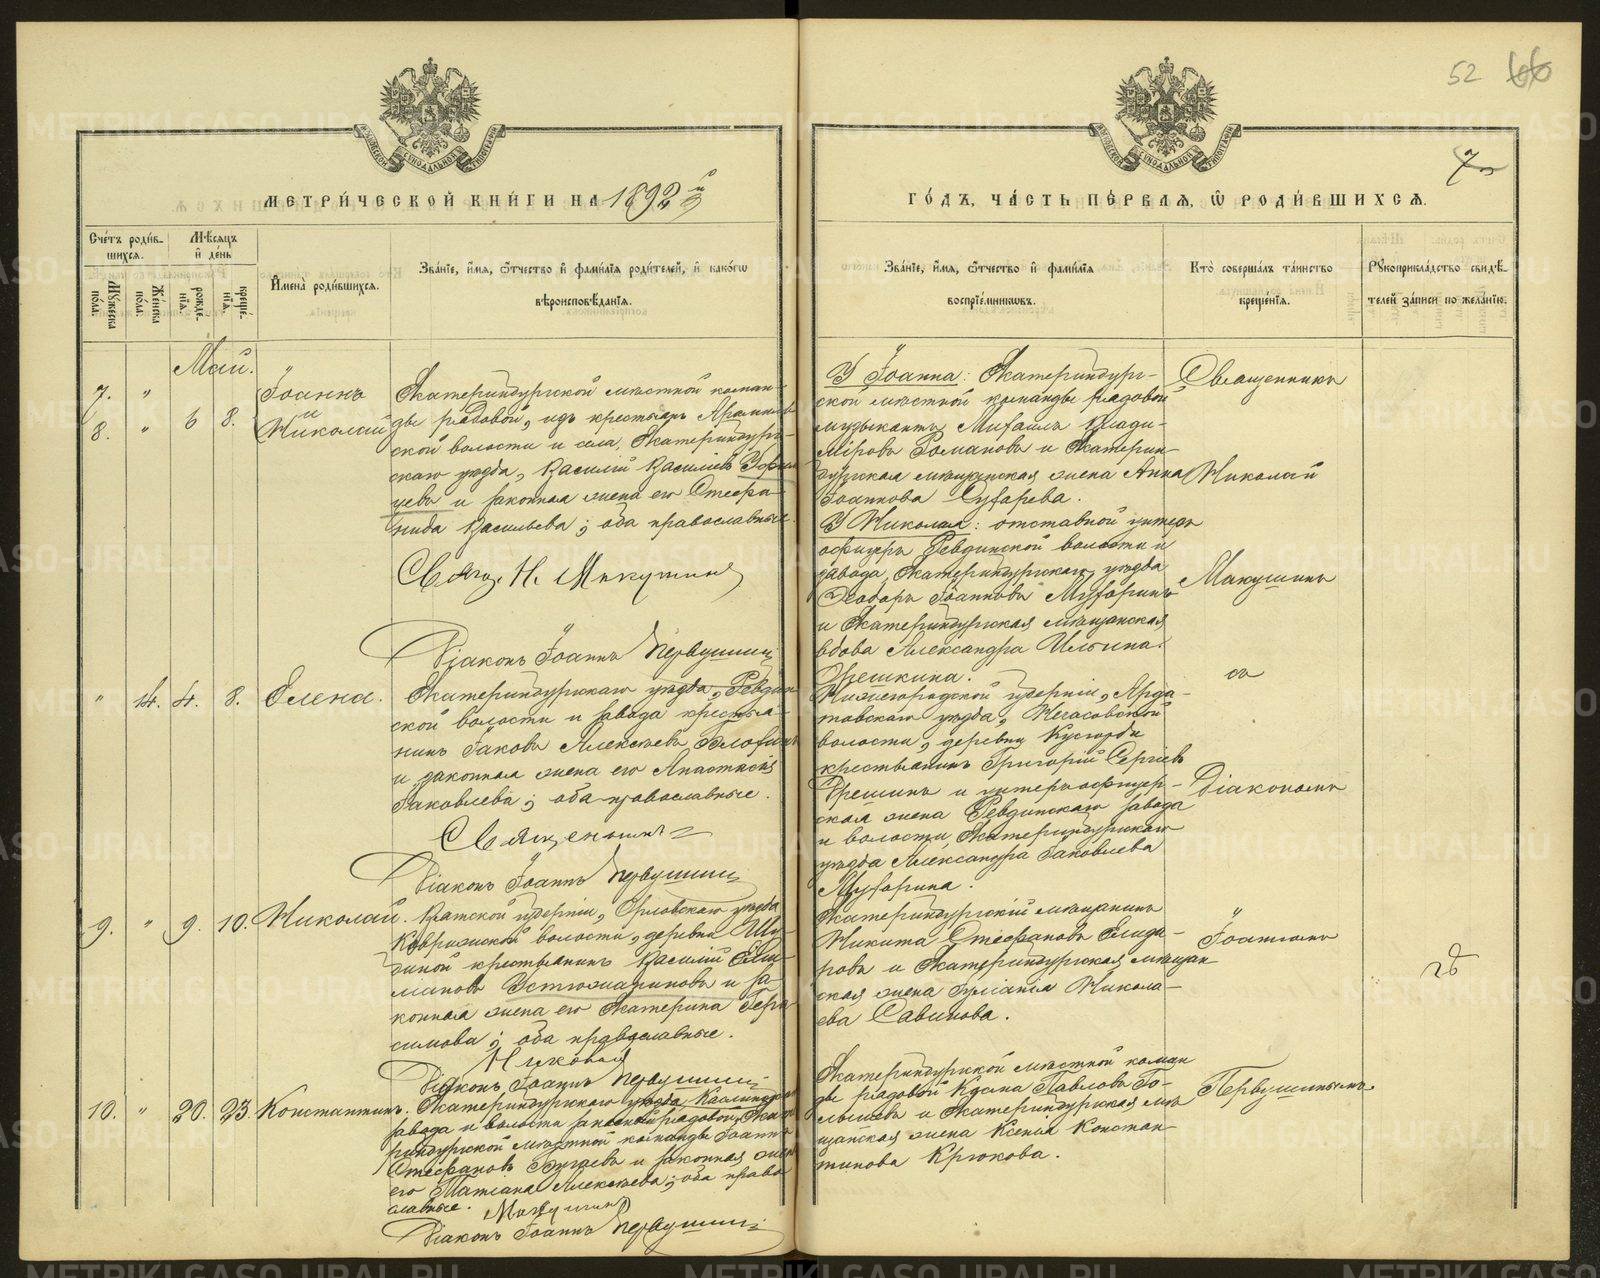 52 66
7
МЕТРИ́ЧЕСКОЙ КНИ́ГИ НА 1892 й
ГО́ДЪ, ЧА́СТЬ ПЕ́РВАѦ, Ѡ҆ РОДИ́ВШИХСѦ.
Сче́тъ роди́вшихся.
Мѣ́сяцъ и҆ де́нь
Мꙋ́жеска по́ла.
Же́нска по́ла.
рожде́нїѧ.
креще́нїѧ.
И҆мена̀ роди́вшихсѧ.
Зва́нїе, и҆́мѧ, ѻ҆́тчество и҆ фами́лїѧ роди́телей, и҆ како́гѡ
вѣроисповѣ́данїѧ.
Зва́нїе, и҆́мѧ, ѻ҆́тчество и҆ фами́лїѧ
воспрїе́мникѡвъ.
Кто̀ соверша́лъ та́инство
креще́нїѧ.
Рꙋкоприкла́дство свидѣ́телей за́писи по жела́нїю.
Май.
7. "
8. " 6 8.
Іоаннъ
и
Николай
Екатеринбургской мѣстной коман-
ды рядовой, изъ крестьянъ Арамиль-
ской волости и села, Екатеринбург-
скаго уѣзда, Василій Васильевъ
и законная жена его Стефа-
нида Васильева; оба православные.
Свящ. Н. Макушинъ
Діаконъ Іоаннъ Первушинъ
У Іоанна: Екатеринбург-
ской мѣстной команды рядовой
музыкантъ Михаилъ Влади-
міровъ Романовъ и Екатерин-
бургская мѣщанская жена Анна
Іоаннова Сухарева.
У Николая: отставной унтеръ
офицеръ Ревдинской волости и
завода, Екатеринбургскаго уѣзда
Ѳеодоръ Іоанновъ Мухоринъ
и Екатеринбургская мѣщанская
вдова Александра Ильина
Орешкина.
Священникъ
Николай
Макушинъ
съ
Діакономъ
Іоанномъ
Первушинымъ.
" 14. 4. 8. Елена.
Екатеринбургскаго уѣзда, Ревдин-
ской волости и завода крестья-
нинъ Іаковъ Алексѣевъ
и законная жена его Анастасія
Іаковлева; оба православные.
Священникъ
Діаконъ Іоаннъ Первушинъ
Нижегородской губерніи, Арда-
товскаго уѣзда,
волости, деревни
крестьянинъ Григорій Сергѣевъ
и унтеръ-офицер-
ская жена Ревдинскаго завода
и волости, Екатеринбургскаго
уѣзда Александра Іаковлева
Мухорина.
9. " 9. 10. Николай.
Вятской губерніи, Орловскаго уѣзда
волости, деревни
крестьянинъ Василій
Устюжаниновъ и за-
конная жена его Екатерина Гера-
симова; оба православные.
Н. Макушинъ
Діаконъ Іоаннъ Первушинъ
Екатеринбургскій мѣщанинъ
Никита Стефановъ Елиза-
ровъ и Екатеринбургская мѣщан-
ская жена Іуліанія Никола-
ева Савинова.
10. " 20. 23. Константинъ.
Екатеринбургскаго уѣзда Каслинскаго
завода и волости запасный рядовой Екате-
ринбургской мѣстной команды Іоаннъ
Стефановъ Бугаевъ и законная жена
его Татіана Алексѣева; оба право-
славные. Макушинъ
Діаконъ Іоаннъ Первушинъ
Екатеринбургской мѣстной коман-
ды рядовой Козма Павловъ Го-
лышевъ и Екатеринбургская мѣ-
щанская жена Ксенія Констан-
тинова Крюкова.
METRIKI.GASO-URAL.RU